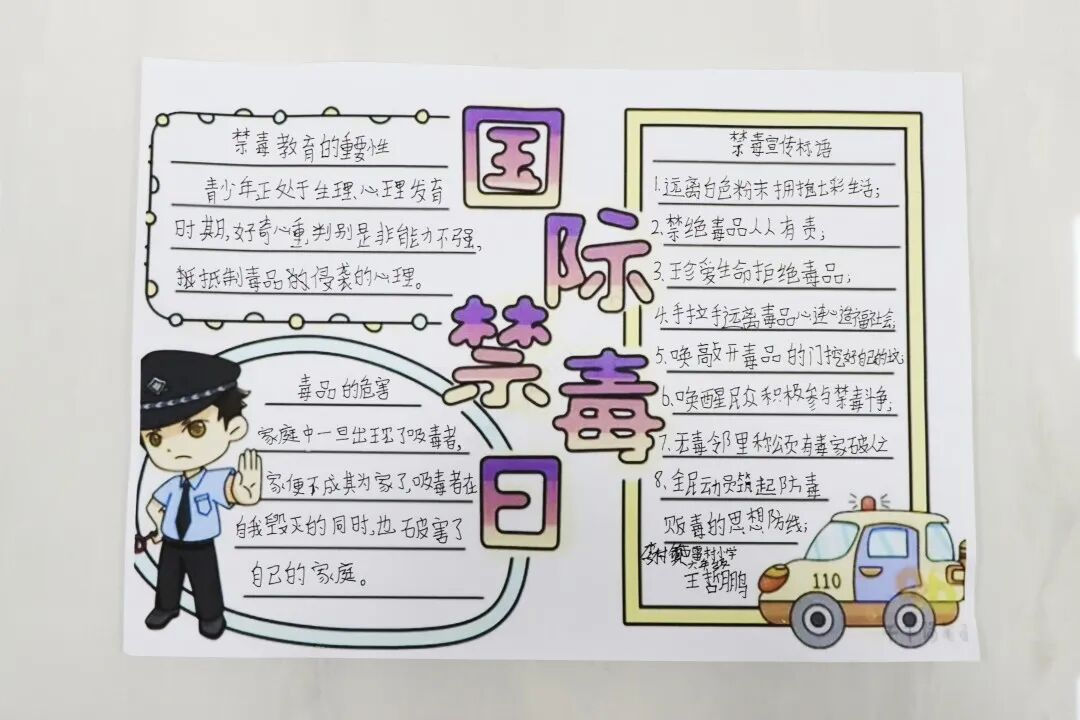 国际禁毒日
禁毒教育的重要性
青少年正处于生理、心理发育
时期,好奇心重,判别是非能力不强,
抵抵制毒品的侵袭的心理。
毒品的危害
家庭中一旦出现了吸毒者,
家便不成其为家了,吸毒者在
自我毁灭的同时,也破害了
自己的家庭。
禁毒宣传标语
1.远离白色粉末拥抱七彩生活;
2.禁绝毒品人人有责;
3.珍爱生命拒绝毒品;
4.手拉手远离毒品心连心造福社会;
5.唤敲开毒品的门挖好自己的坑;
6.唤醒民众积极参与禁毒斗争;
7.无毒邻里称颂有毒家破人亡
8.全民动员筑起防毒
贩毒的思想防线;
村小学
王哲鹏
110